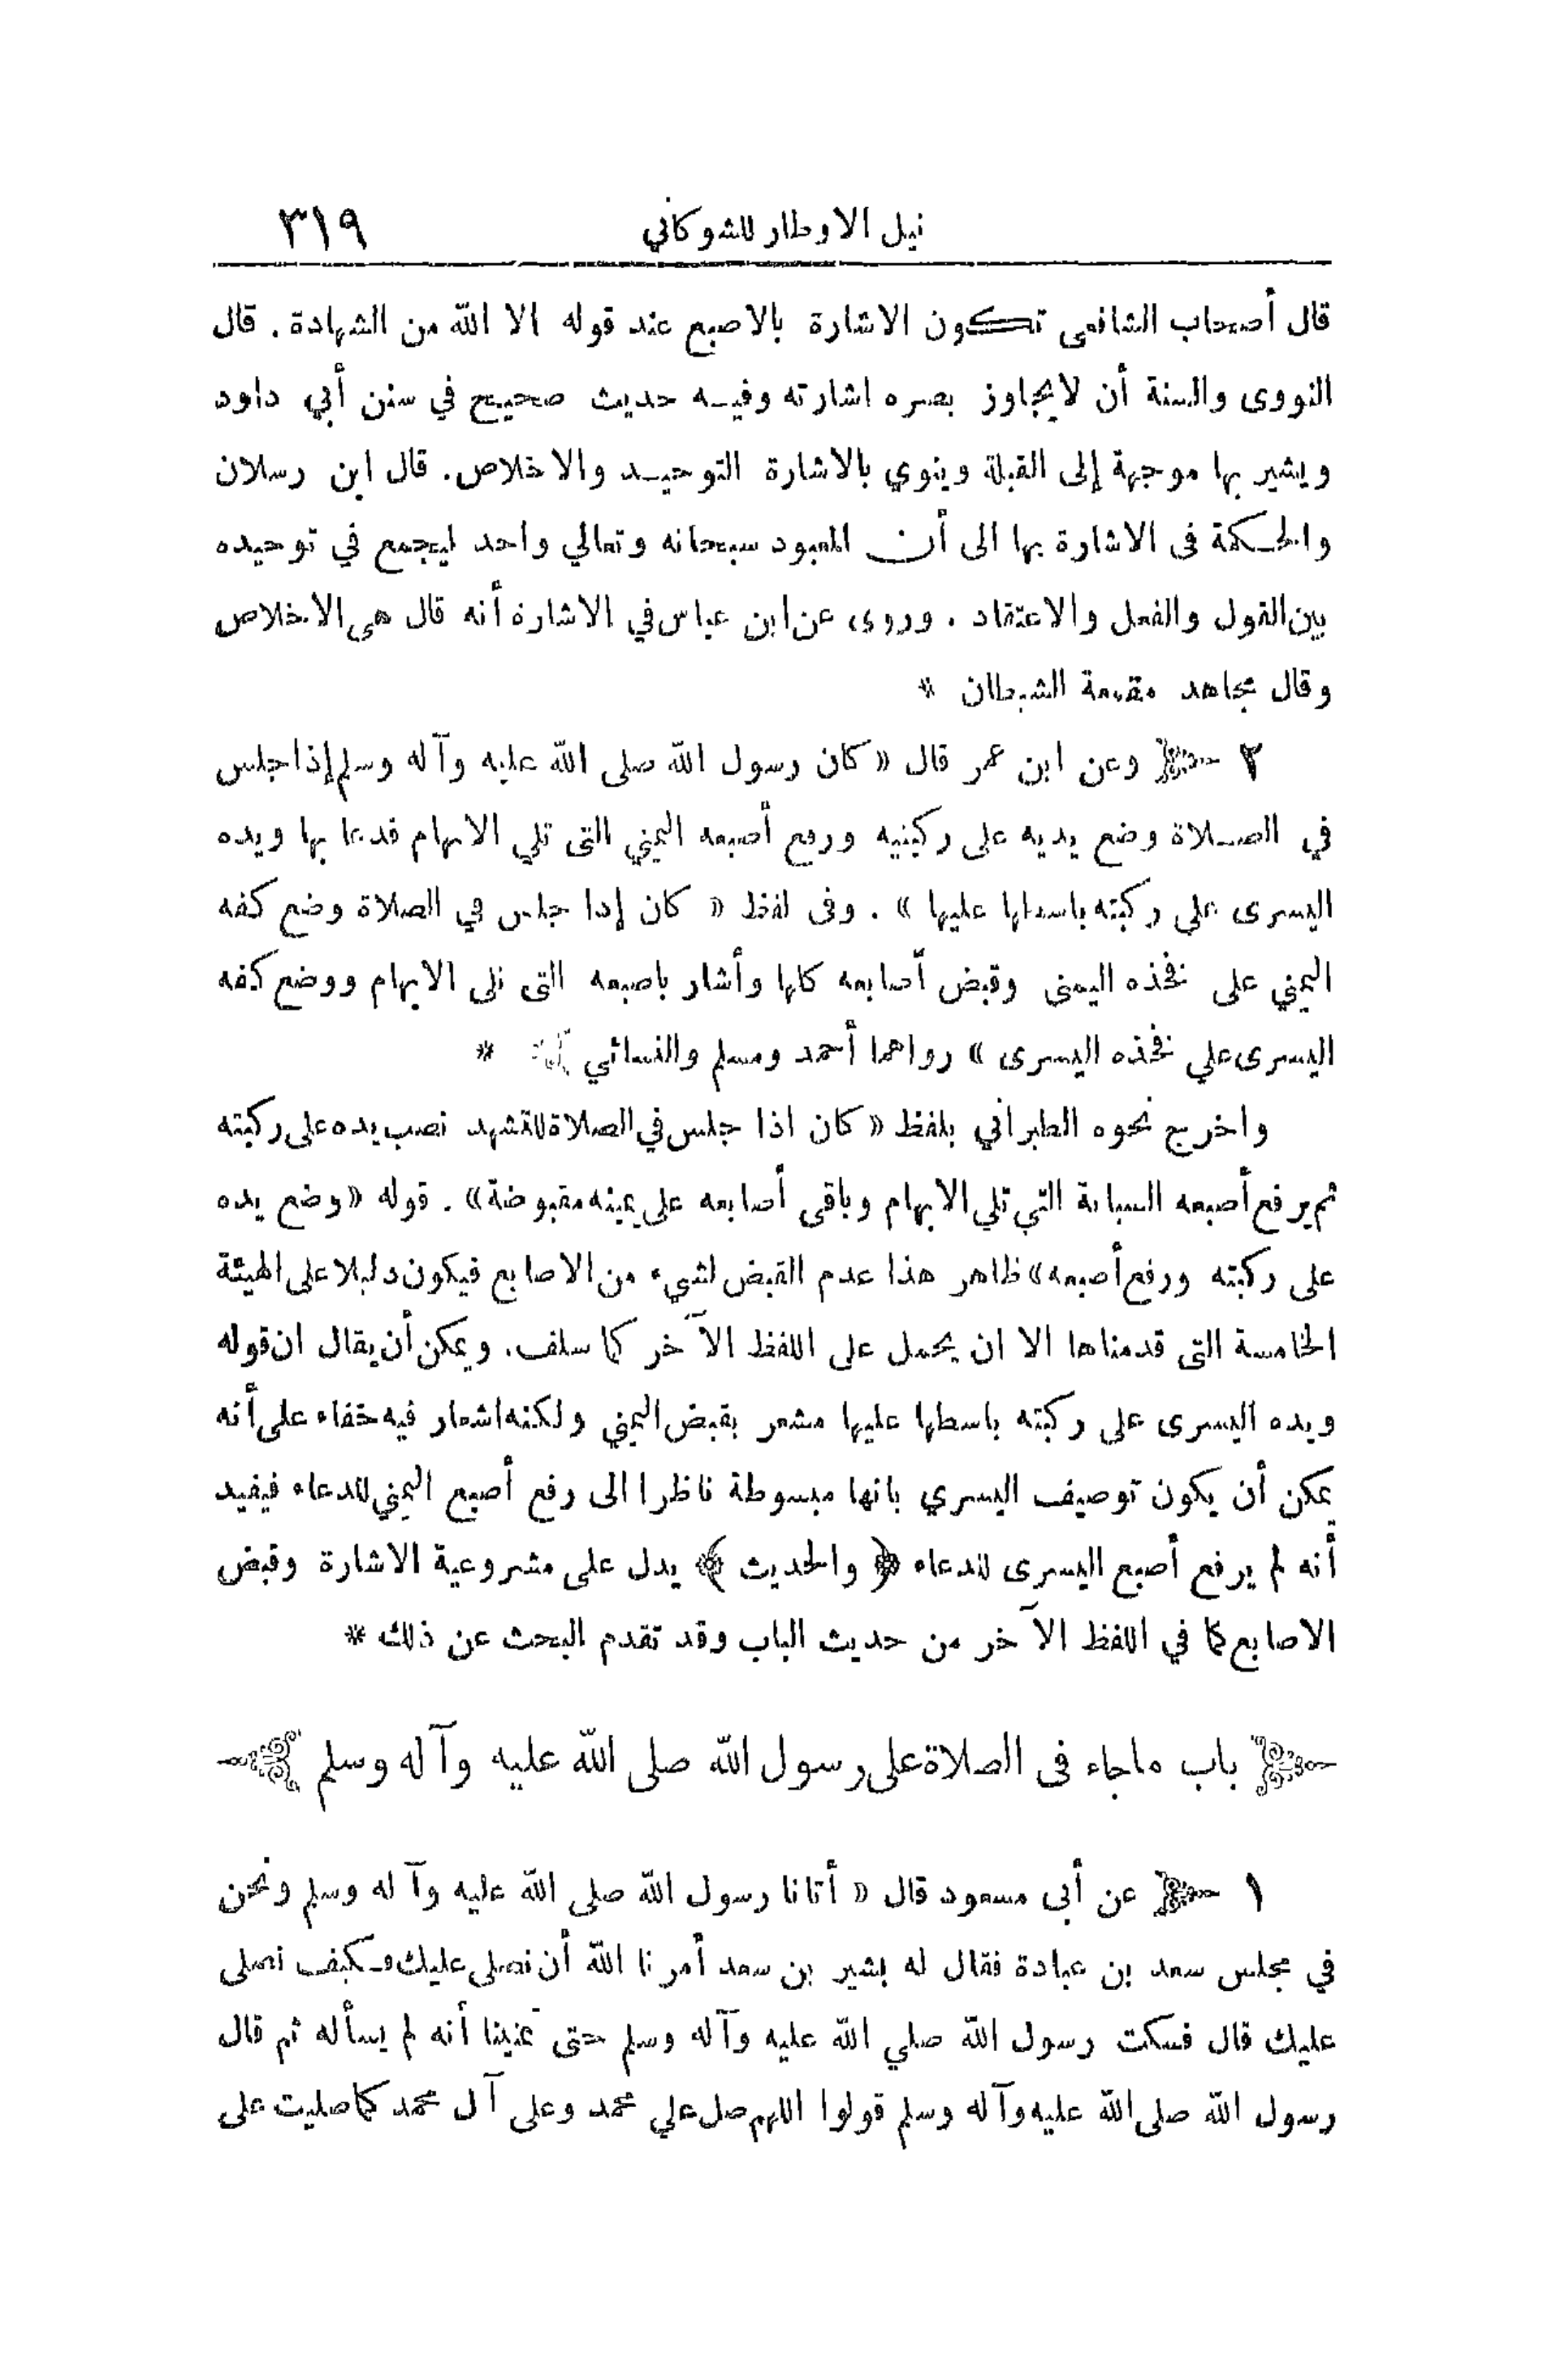 نيل الاوطار للشوكاني ٣١٩
قال أصحاب الشافعى تكون الاشارة بالاصبع عند قوله الا الله من الشهادة . قال
النووى والسنة أن لايجاوز بصره اشارته وفيـه حديث صحيح في سنن أبي داود
ويشير بها موجهة إلى القبلة وينوي بالاشارة التوحيـد والاخلاص. قال ابن رسلان
والحـكمة فى الاشارة بها الى أن المعبود سبحانه وتعالي واحد ليجمع في توحيده
بين القول والفعل والاعتقاد . وروى عن ابن عباس في الاشارة أنه قال هى الاخلاص
وقال مجاهد مقمعة الشيطان *
٢ وعن ابن عمر قال « كان رسول الله صلى الله عليه وآله وسلم إذا جلس
في الصـلاة وضع يديه على ركبتيه ورفع أصبعه اليمني التى تلي الابهام فدعا بها ويده
اليسرى على ركبته باسطها عليها » . وفى لفظ « كان إذا جلس في الصلاة وضع كفه
اليمني على فخذه اليمنى وقبض أصابعه كلها وأشار باصبعه التى تلى الابهام ووضع كفه
اليسرى علي فخذه اليسرى » رواهما أحمد ومسلم والنسائي *
واخرج نحوه الطبراني بلفظ « كان اذا جلس في الصلاة للتشهد نصب يده على ركبته
ثم يرفع أصبعه السبابة التي تلي الابهام وباقى أصابعه على يمينه مقبوضة» . قوله «وضع يده
على ركبته ورفع أصبعه» ظاهر هذا عدم القبض لشيء من الاصابع فيكون دليلا على الهيئة
الخامسة التى قدمناها الا ان يحمل على اللفظ الآخر كما سلف. ويمكن أن يقال ان قوله
ويده اليسرى على ركبته باسطها عليها مشعر بقبض اليمني ولكنه اشعار فيه خفاء على أنه
يمكن أن يكون توصيف اليسري بانها مبسوطة ناظرا الى رفع أصبع اليمني للدعاء فيفيد
أنه لم يرفع أصبع اليسرى للدعاء ﴿ والحديث ﴾ يدل على مشروعية الاشارة وقبض
الاصابع كما في اللفظ الآخر من حديث الباب وقد تقدم البحث عن ذلك *
باب ماجاء فى الصلاة على رسول الله صلى الله عليه وآله وسلم
١ عن أبى مسعود قال « أتانا رسول الله صلى الله عليه وآله وسلم ونحن
في مجلس سعد بن عبادة فقال له بشير بن سعد أمرنا الله أن نصلى عليك فـكيف نصلى
عليك قال فسكت رسول الله صلي الله عليه وآله وسلم حتى تمنينا أنه لم يسأله ثم قال
رسول الله صلى الله عليه وآله وسلم قولوا اللهم صل علي محمد وعلى آل محمد كما صليت على